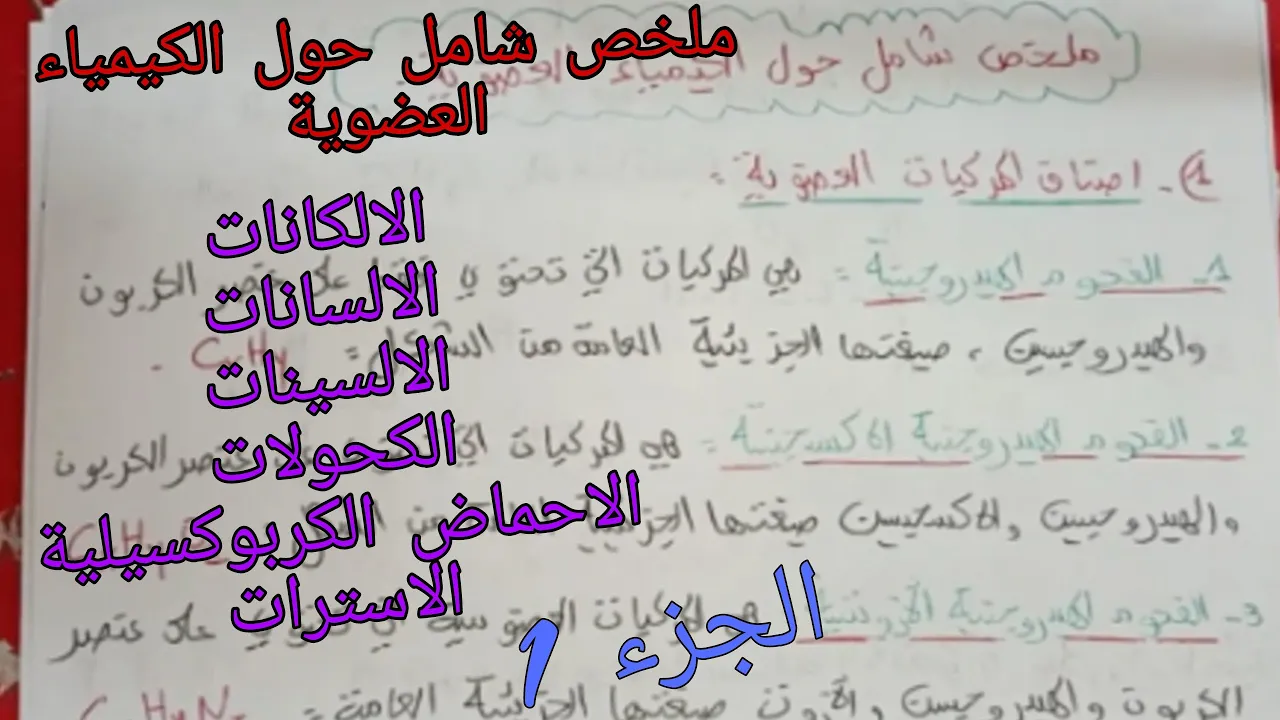 ملخص شامل حول الكيمياء
العضوية
الالكانات
الالسانات
الالسينات
الكحولات
الاحماض الكربوكسيلية
الاسترات
الجزء 1
ملخص شامل حول الكيمياء العضوية
1- اصناف المركبات العضوية :
1- الفحوم الهيدروجينية : هي المركبات التي تحتوي فقط على عنصر الكربون
والهيدروجين ، صيغتها الجزيئية العامة من الشكل : CxHy .
2- الفحوم الهيدروجينية الاكسجينية : هي المركبات التي عنصر الكربون
والهيدروجين والاكسجين صيغتها الجزيئية من
3- الفحوم الهيدروجينية الآزوتية : هي المركبات العضوية التي تحتوي على عنصر
الكربون والهيدروجين والآزوت صيغتها الجزيئية العامة : CxHyNz